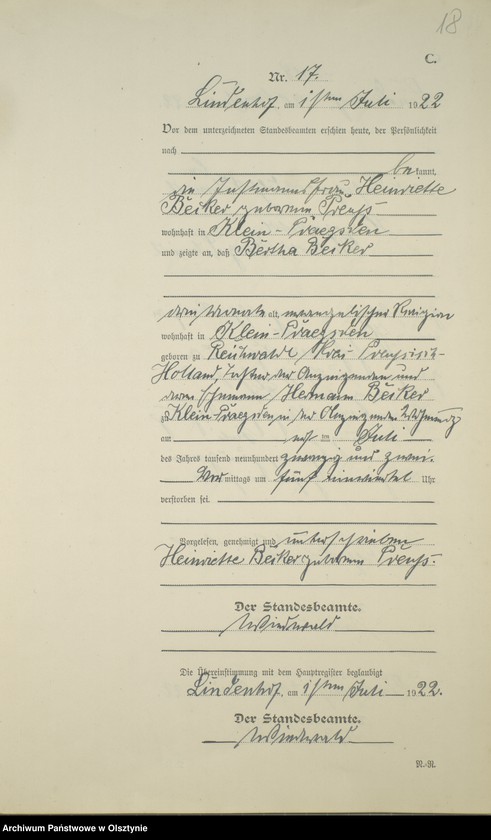 18
C.
Nr. 17.
Lindenhof, am 1sten Juli 1922
Vor dem unterzeichneten Standesbeamten erschien heute, der Persönlichkeit
nach
bekannt,
die Instmannsfrau Heinriette
Beiker geborenen Preuß
wohnhaft in Klein-Präegsden
und zeigte an, daß Bertha Beiker
drei Monate alt, evangelischer Religion
wohnhaft in Klein-Präegsden
geboren zu Reichwalde Kreis Preussisch-
Holland, Tochter der Anzeigenden und
deren Ehemann Hermann Beiker
zu Klein-Präegsden, in der Anzeigenden Wohnung
am im Juli
des Jahres tausend neunhundert zwanzig und zwei.
Vormittags um fünf einviertel Uhr
verstorben sei.
Vorgelesen, genehmigt und unterschrieben
Heinriette Beiker geborenen Preuß.
Der Standesbeamte.
Die Übereinstimmung mit dem Hauptregister beglaubigt
Lindenhof, am 1sten Juli 1922.
Der Standesbeamte.
Archiwum Państwowe w Olsztynie